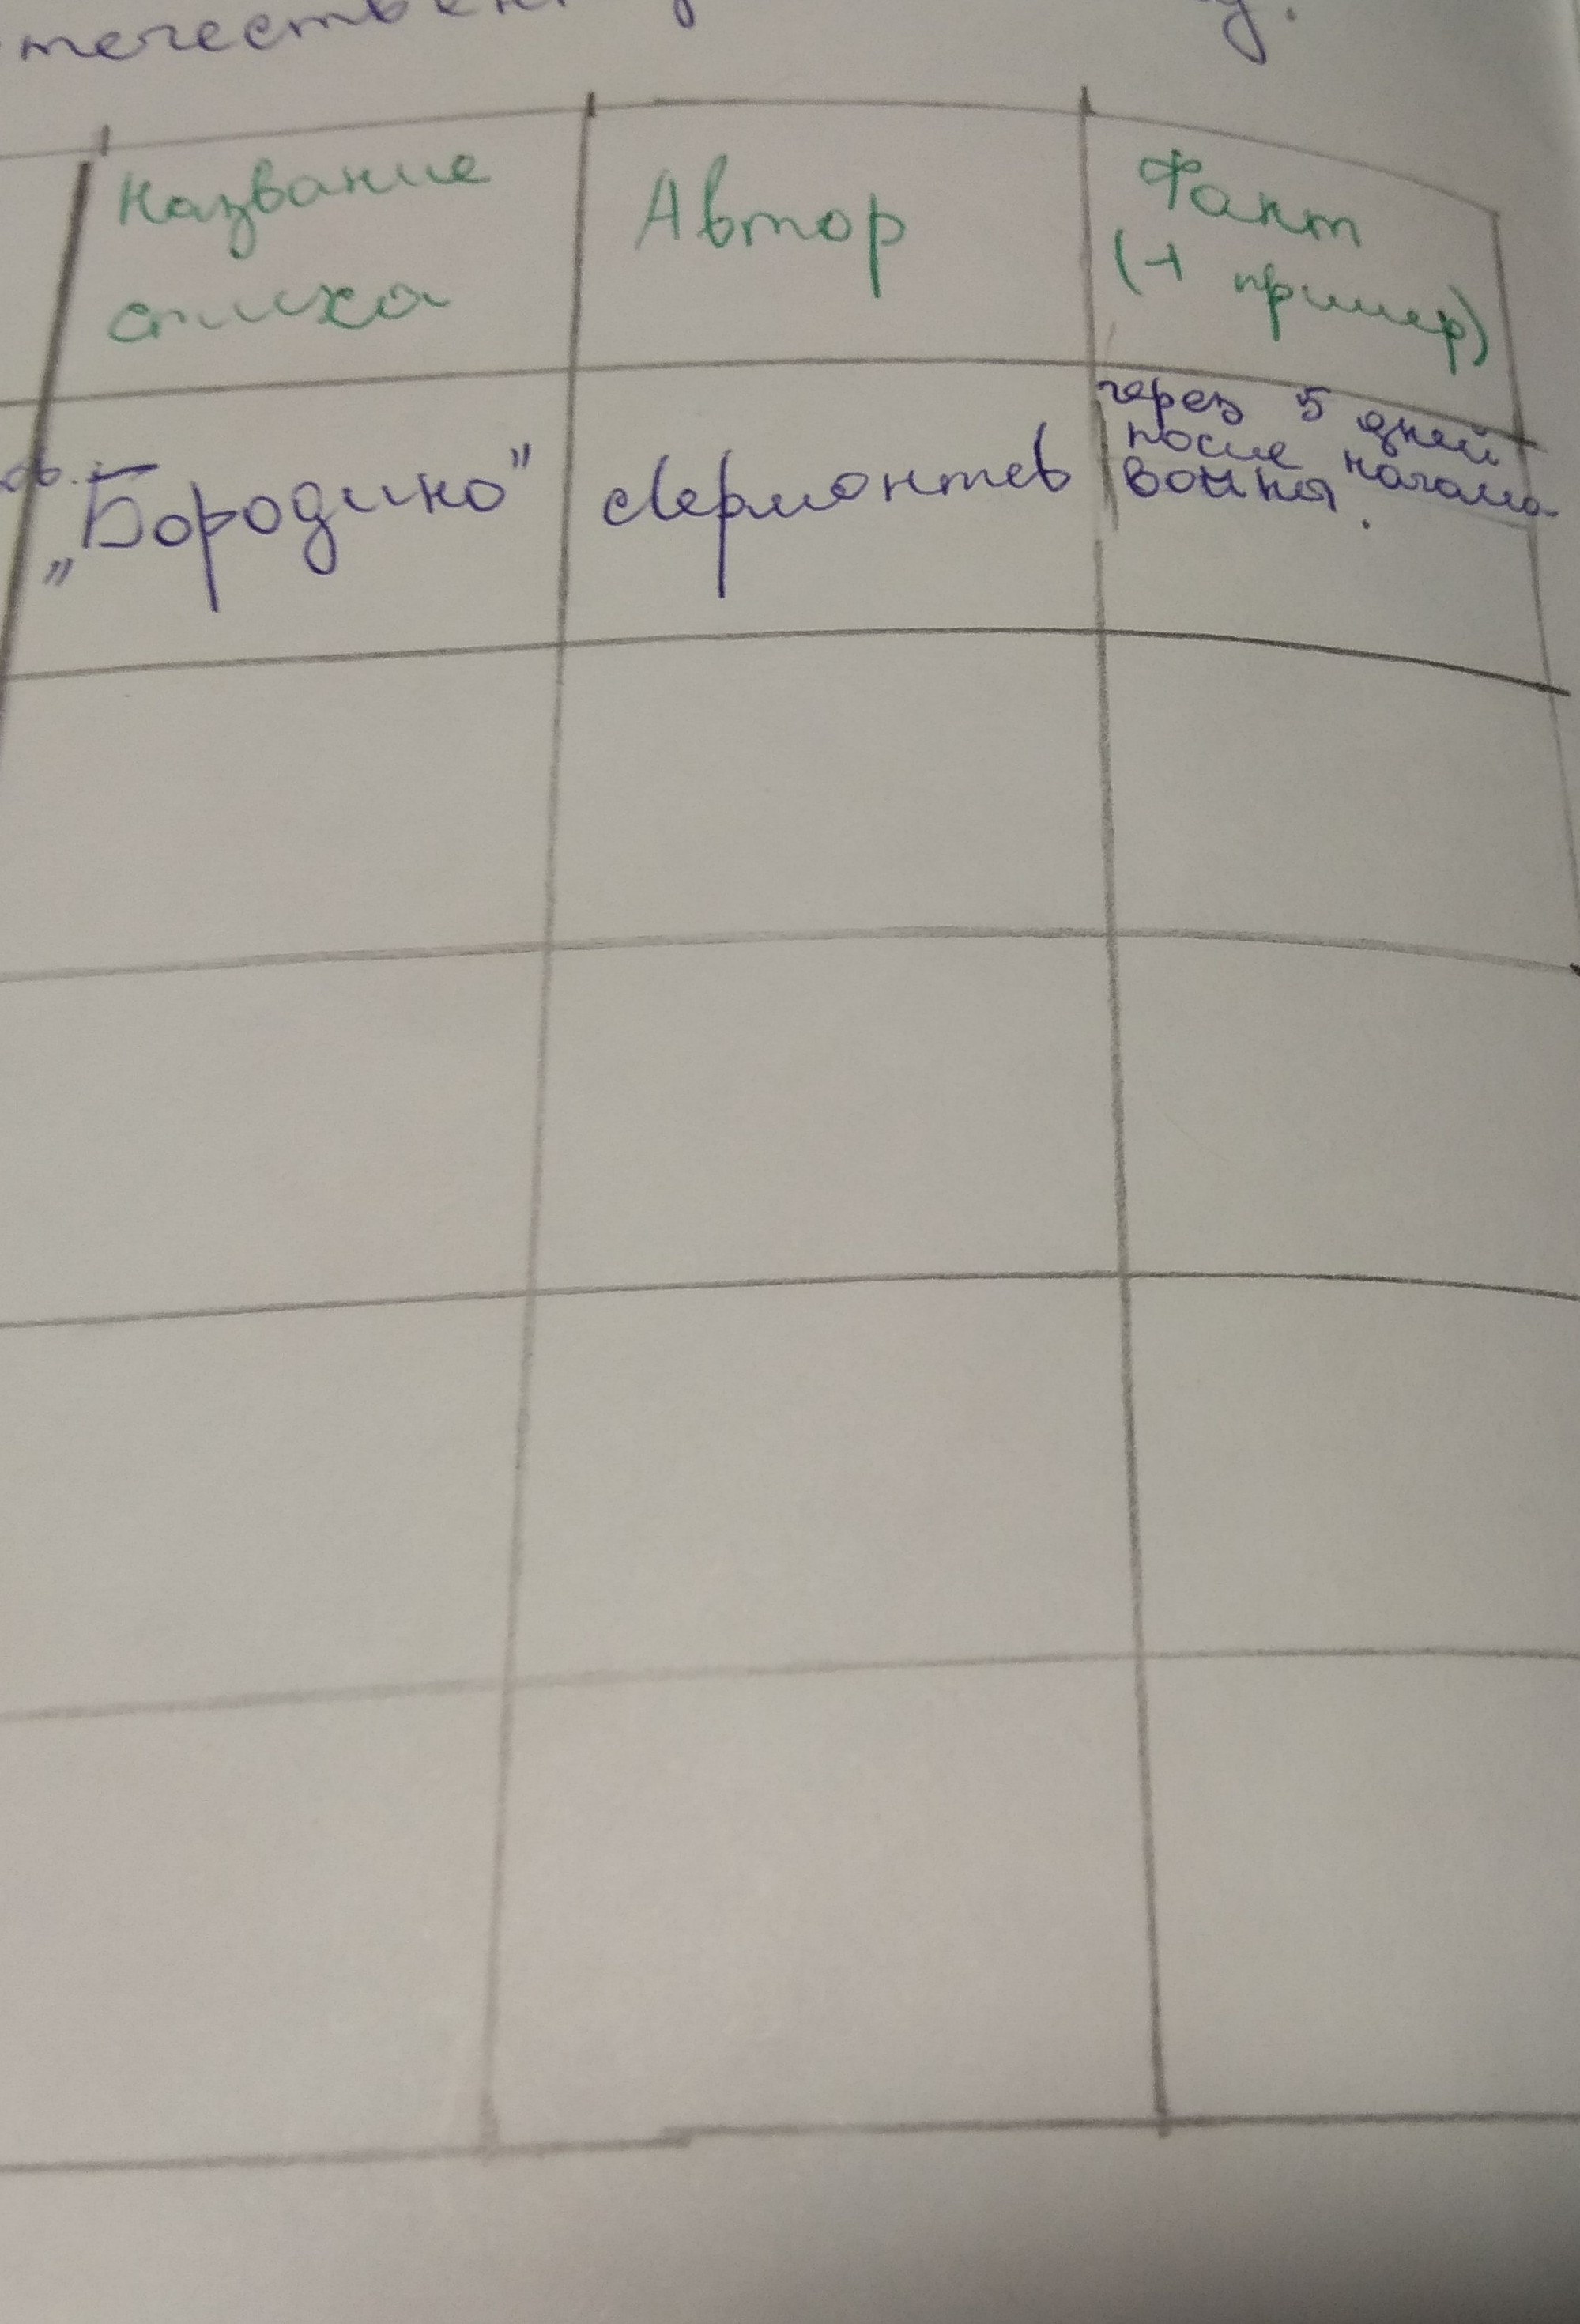 Название
стиха
Автор
Факт
(+1 пример)
„Бородино”
Лермонтов
через 5 дней
после начала
войны.